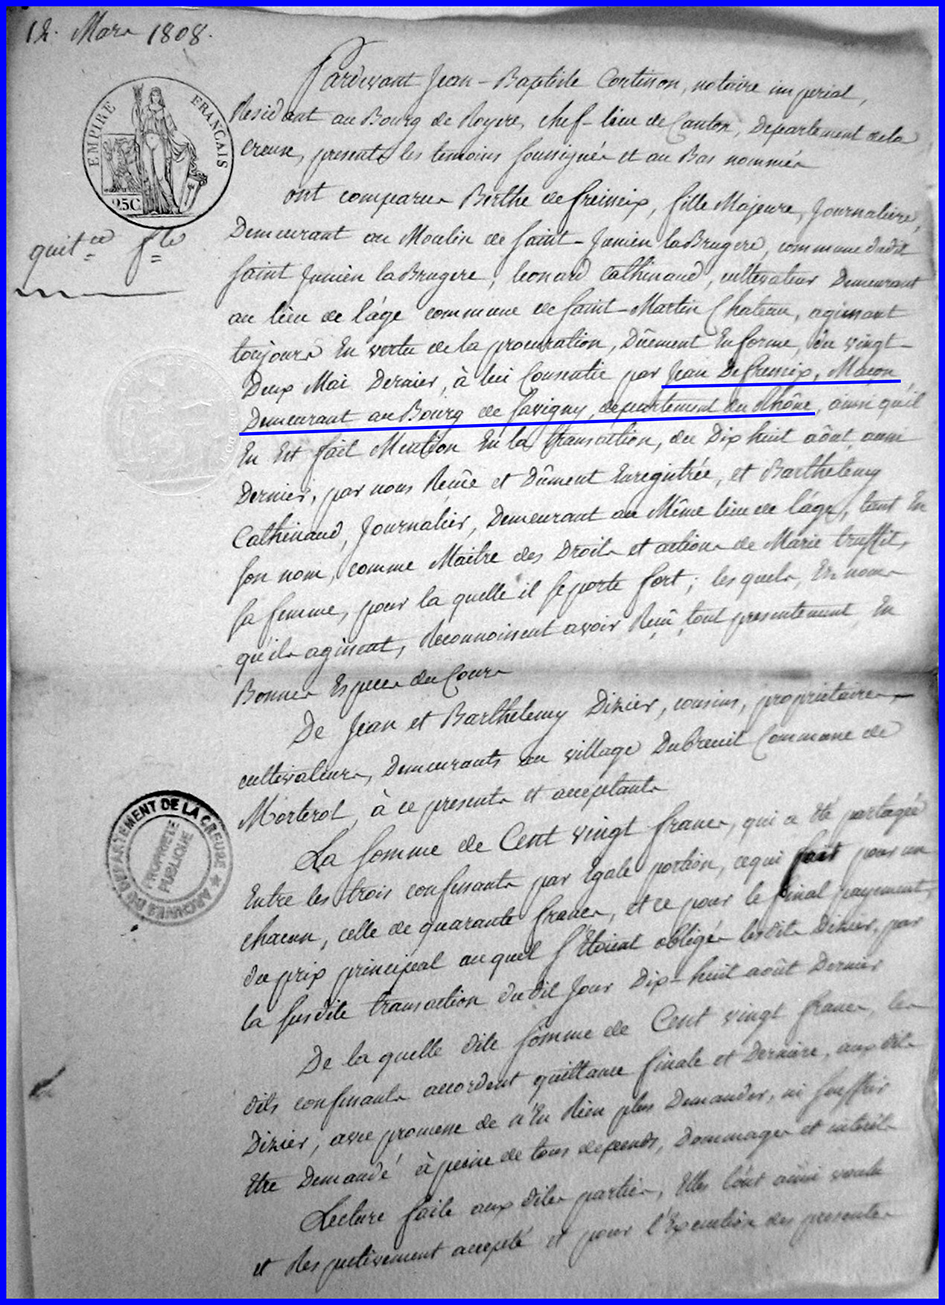 12. Mars 1808.
EMPIRE FRANÇAIS
25C
quit.ce f.le
Pardevant Jean-Baptiste Cortinon, notaire imperial,
Résidant au Bourg de Royere, chef-lieu de Canton, Departement de la
creuse, presents les temoins soussignés et au Bas nommés
ont comparus Berthe defreissix, fille Majeure, Journaliere,
Demeurant au Moulin de Saint-Junien laBrugere, commune dudit
Saint Junien laBrugere, leonard Cathinaud, cultivateur Demeurant
au lieu de l'age commune de Saint-Martin Chateau, agissant
toujours En vertu de la procuration, Dûement En forme, du vingt-
Deux Mai Dernier, à lui Consentie par Jean Defressix, Maçon
Demeurant au Bourg de Savigny, departement du Rhône, ainsi qu'il
En Est fait Mention En la transaction, du Dix huit aôut aussi
Dernier, par nous Reçue et Dûment Enregistrée, et Barthelemy
Cathinaud, Journalier, Demeurant au Même lieu de l'age, tant En
son nom, comme Maitre des Droits et actions de Marie truffit
sa femme, pour la quelle il se porte fort; les quels, En noms
qu'ils agissent, Reconnoissent avoir Reçu, tout presentement, En
Bonnes Especes du Cours
De Jean et Barthelemy Dizier, cousins, propriétaires-
cultivateurs, Demeurants au village Dubreuil Commune de
Morterol, à ce presents et acceptants
La somme de Cent vingt francs, qui a été partagée
Entre les trois confessants par Egale portion, cequi fait pour un
chacun, celle de quarante francs, et ce pour le final payement,
du prix principal au quel s'étoient obligés lesdits Dizier, par
la susdite transaction dudit Jour Dix-huit août Dernier
De la quelle dite somme de Cent vingt francs, les
dits confessants accordent quittance finale et Derniere, aux dits
Dizier, avec promesse de n'En Rien plus Demander, ni souffrir
Etre Demandé à peine de tous depends, Dommages et intérêts
Lecture faite aux dites parties, Elles l'ont ainsi voulu
et Respectivement accepté et pour l'Execution des presentes
ARCHIVES DU DÉPARTEMENT DE LA CREUSE
PROPRIÉTÉ
PUBLIQUE